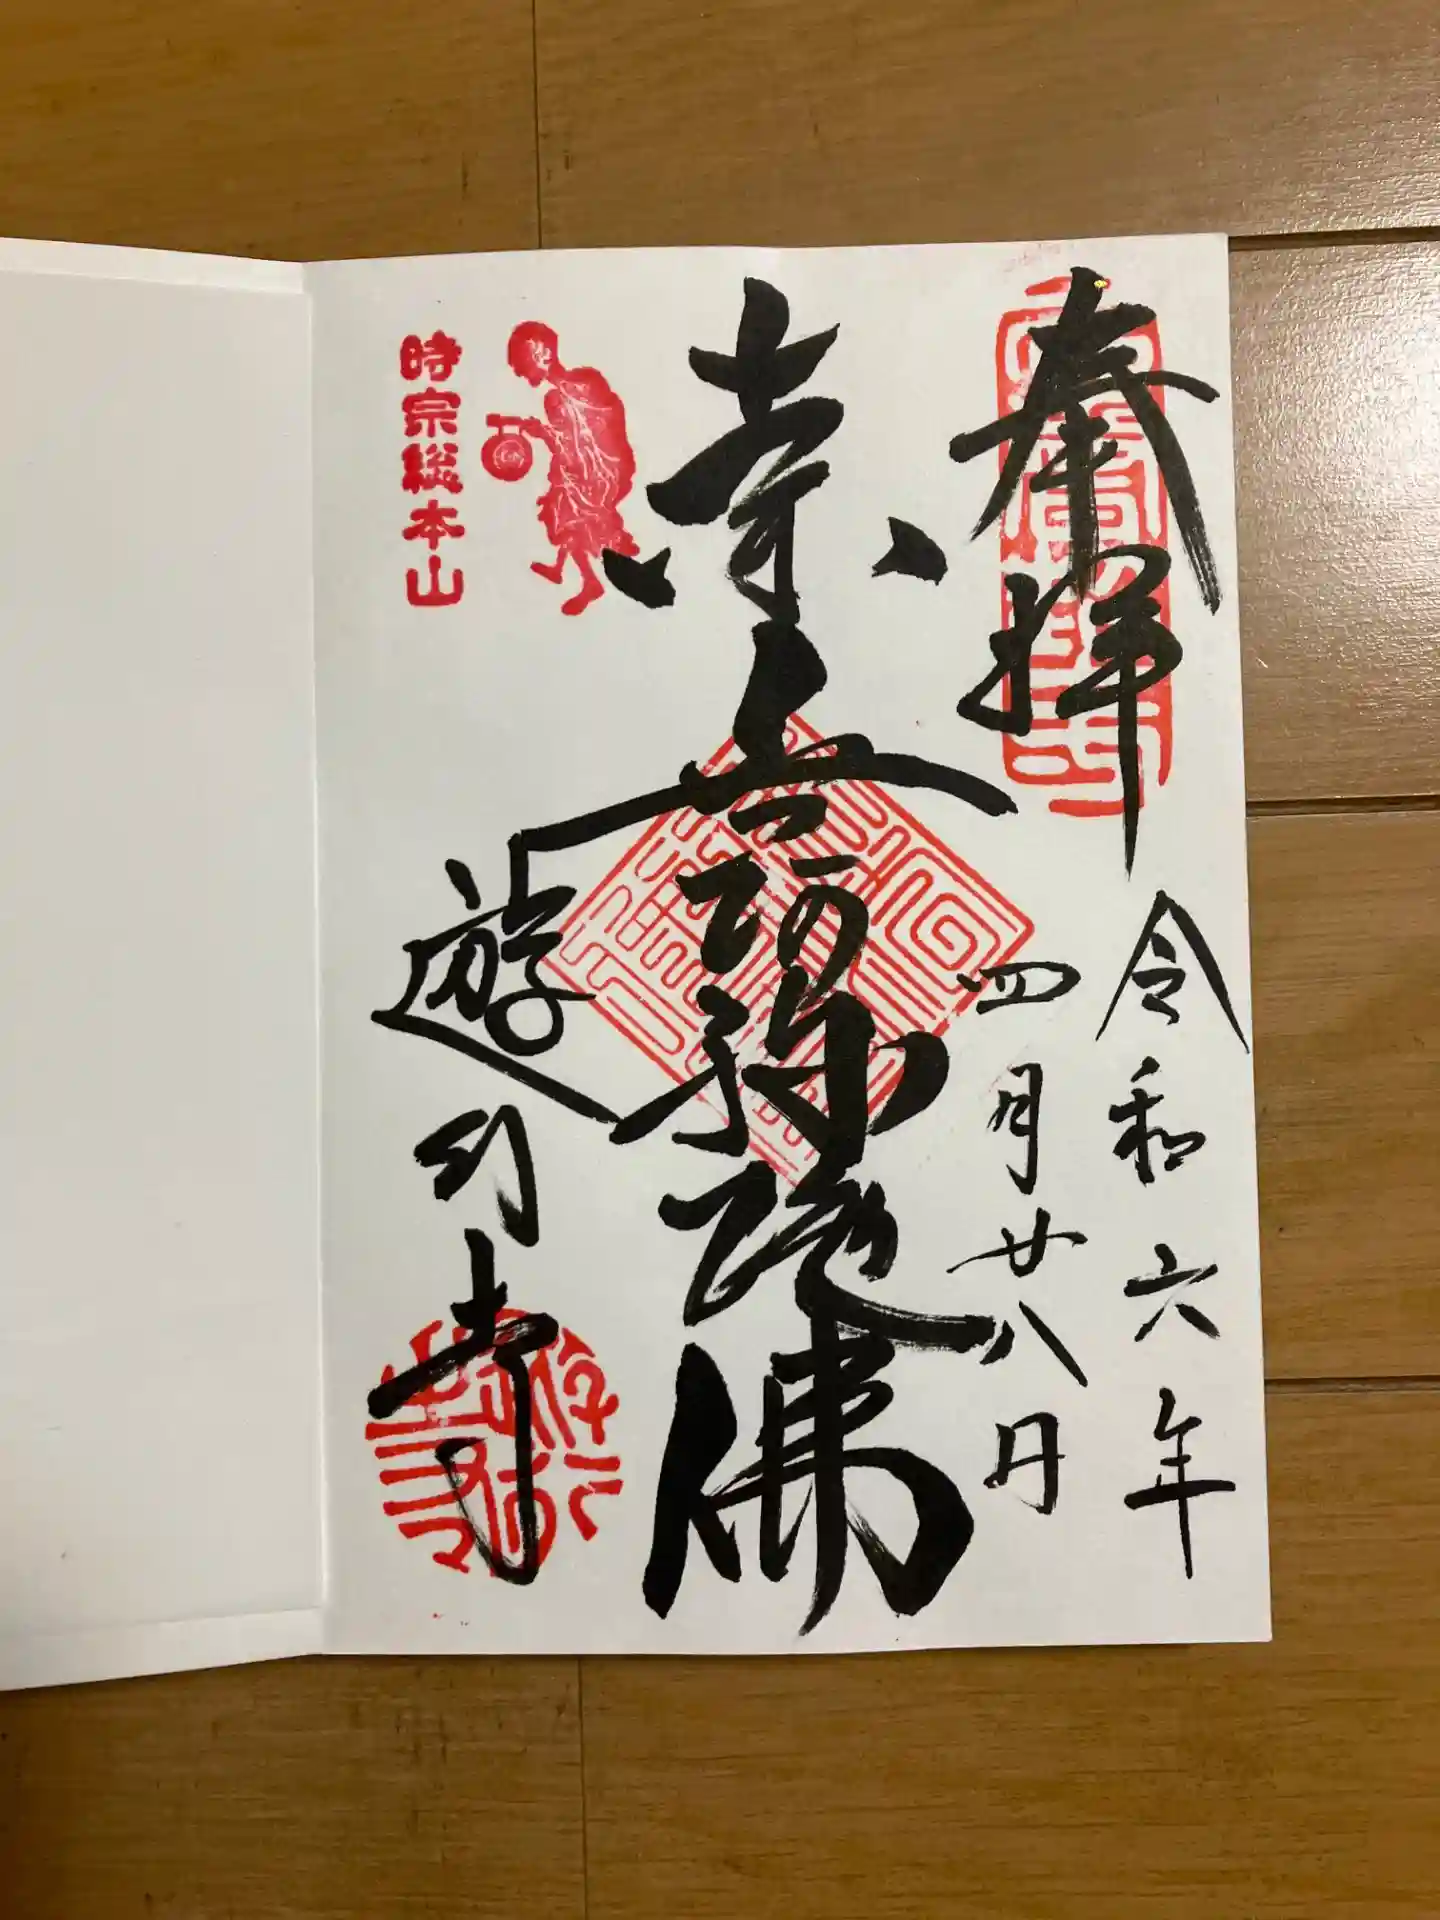 奉拝
令和六年
四月廿八日
南無阿弥陀佛
遊行寺
時宗総本山